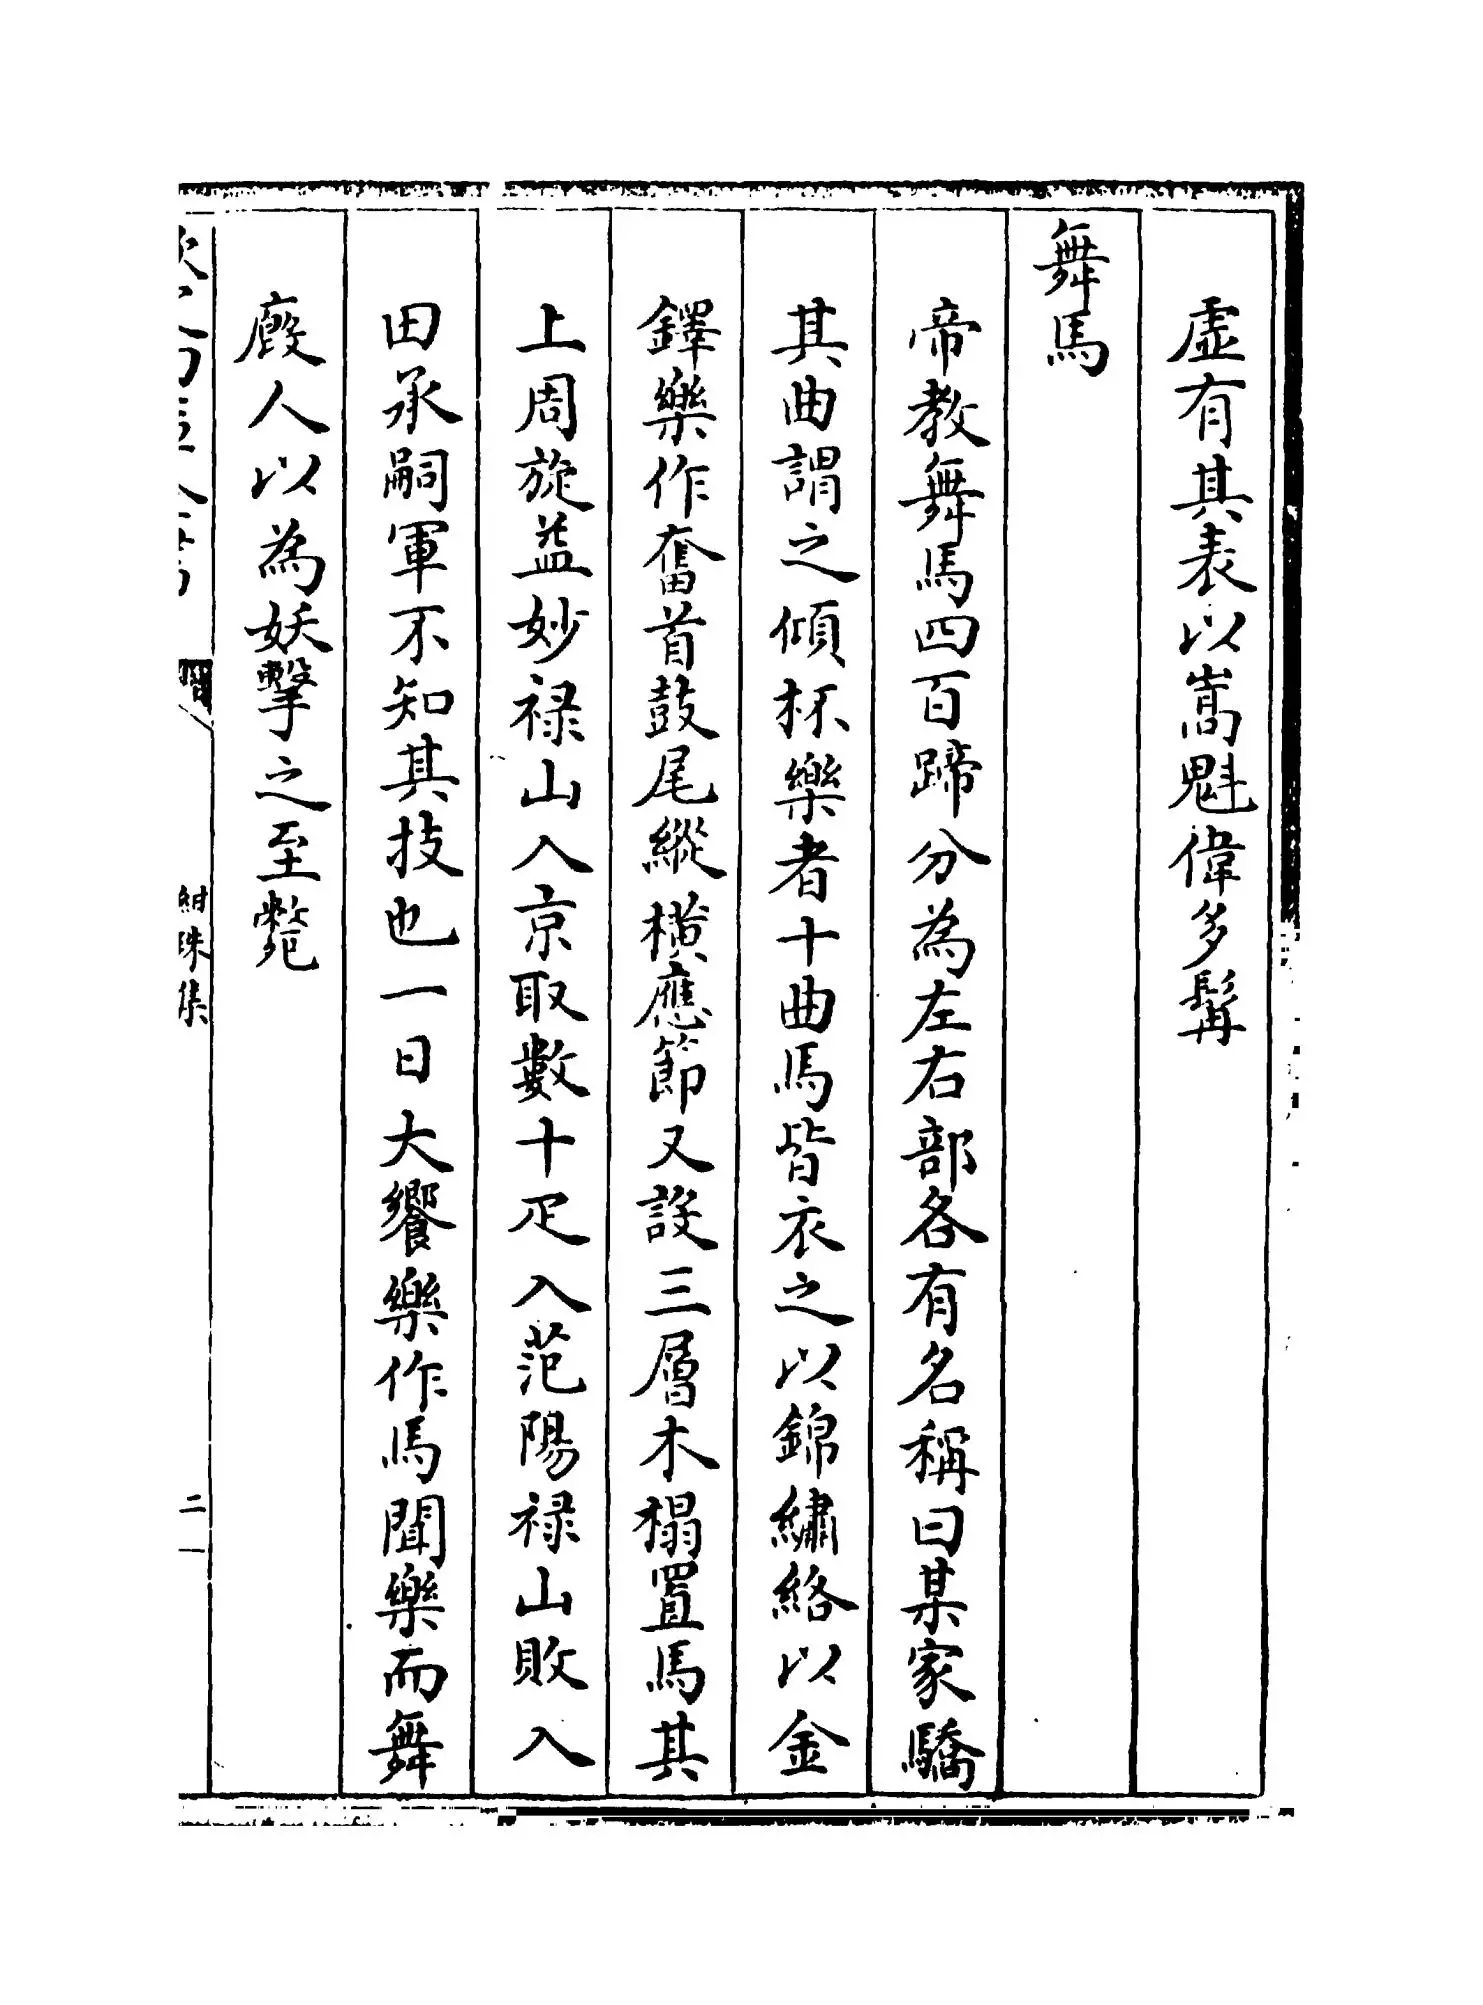 虛有其表以嵩魁偉多髯
舞馬
帝教舞馬四百蹄分為左右部各有名稱曰某家驕
其曲謂之傾杯樂者十曲馬皆衣之以錦繡絡以金
鐸樂作奮首鼓尾縱横應節又設三層木榻置馬其
上周旋益妙禄山入京取數十疋入范陽禄山敗入
田承嗣軍不知其技也一日大饗樂作馬聞樂而舞
廐人以為妖擊之至斃
紺珠集
二